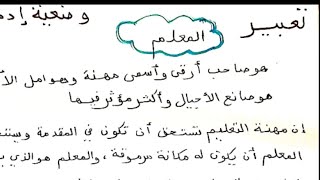 تعبير
وضعية إدم
المعلم
هو صاحب أرقى وأسمى مهنة وهو امل الأ
هو صانع الأجيال وأكثر مؤثر فيها
إن مهنة التعليم تستحق أن تكون في المقدمة ويستحق
المعلم أن يكون له مكانة مرموقة، والمعلم هو الذي ي